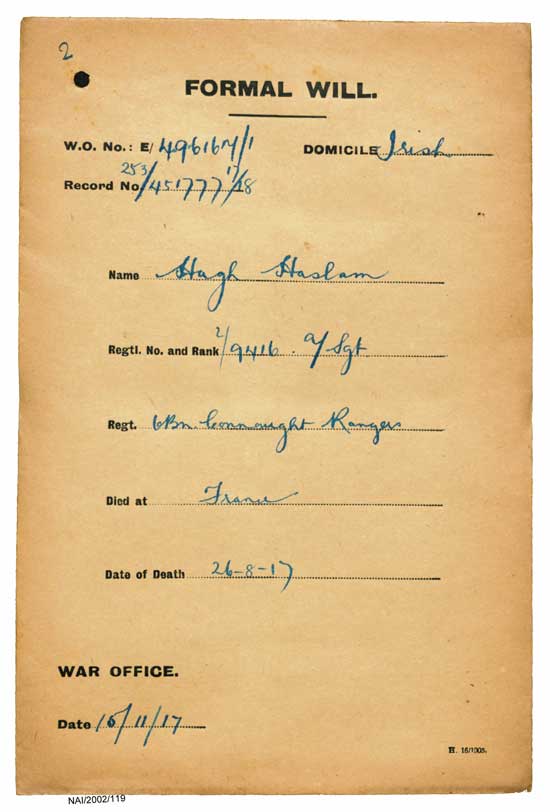 2
FORMAL WILL.
W.O. No.: E/ 496167/1 DOMICILE Irish
253/ 17/
Record No. 451777/18
Name Hugh Haslam
Regtl. No. and Rank 2/9416 . a/Sgt
Regt. 6Bn. Connaught Rangers
Died at France
Date of Death 26-8-17
WAR OFFICE.
Date 16/11/17
H. 16/1005.
NAI/2002/119